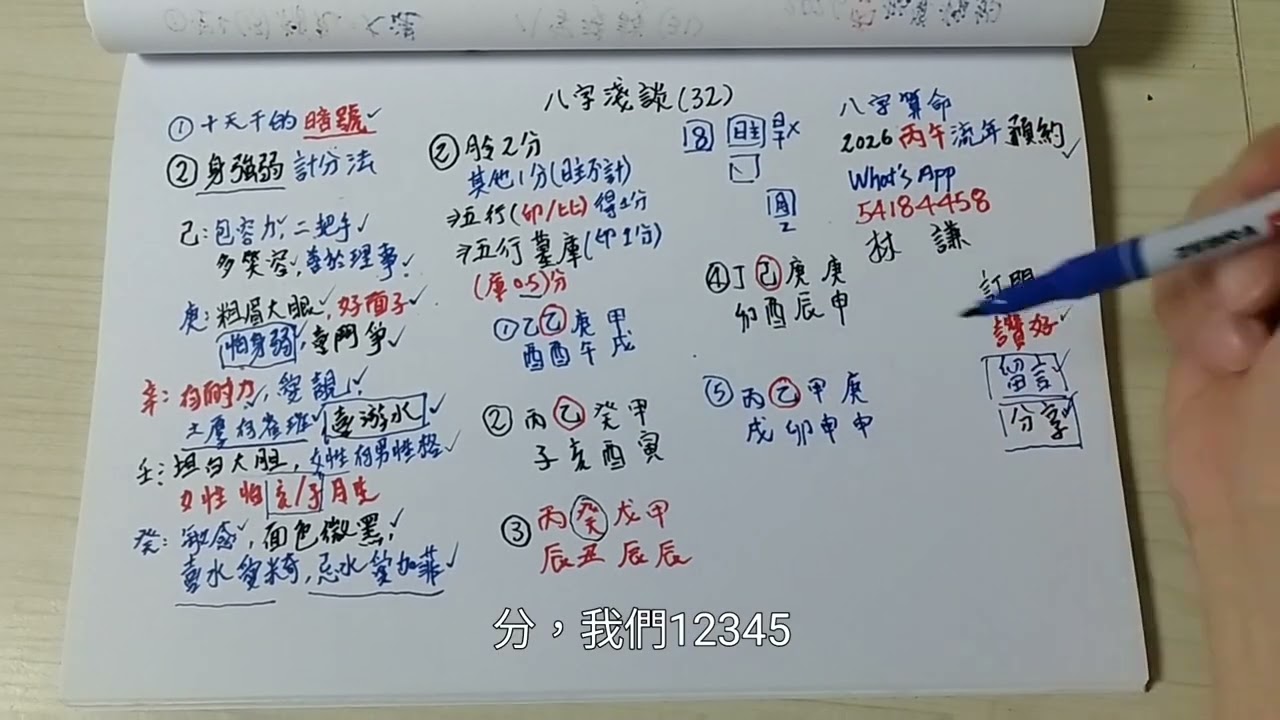 八字淺談(32)
① 十天干的 暗號✓
② 身強弱 計分法
己:包容力✓, 二把手✓
多笑容, 善於理事✓
庚: 粗眉大眼✓, 好面子✓
怕身弱, 喜鬥爭✓
辛: 有耐力✓, 愛靚✓
土厚有雀斑✓ 喜游水✓
壬: 坦白大胆, 女性有男性格✓
女性 怕 亥/子 月生
癸: 敏感✓, 面色微黑✓
喜水愛, 忌水愛加菲✓
② 月令2分
其他1分(日主不計)
⇒五行(印/比) 得1分
⇒五行墓庫(印1分)
(庫0.5)分
① 乙 乙 庚 甲
酉 酉 午 戌
② 丙 乙 癸 甲
子 亥 酉 寅
③ 丙 癸 戊 甲
辰 丑 辰 辰
18 日主 x
月
2
④ 丁 己 庚 庚
卯 酉 辰 申
⑤ 丙 乙 甲 庚
戌 卯 申 申
八字算命
2026 丙午 流年 預約✓
What's App
54184458
林 謙
訂閱
讚好✓
留言✓
分享✓
分，我們12345